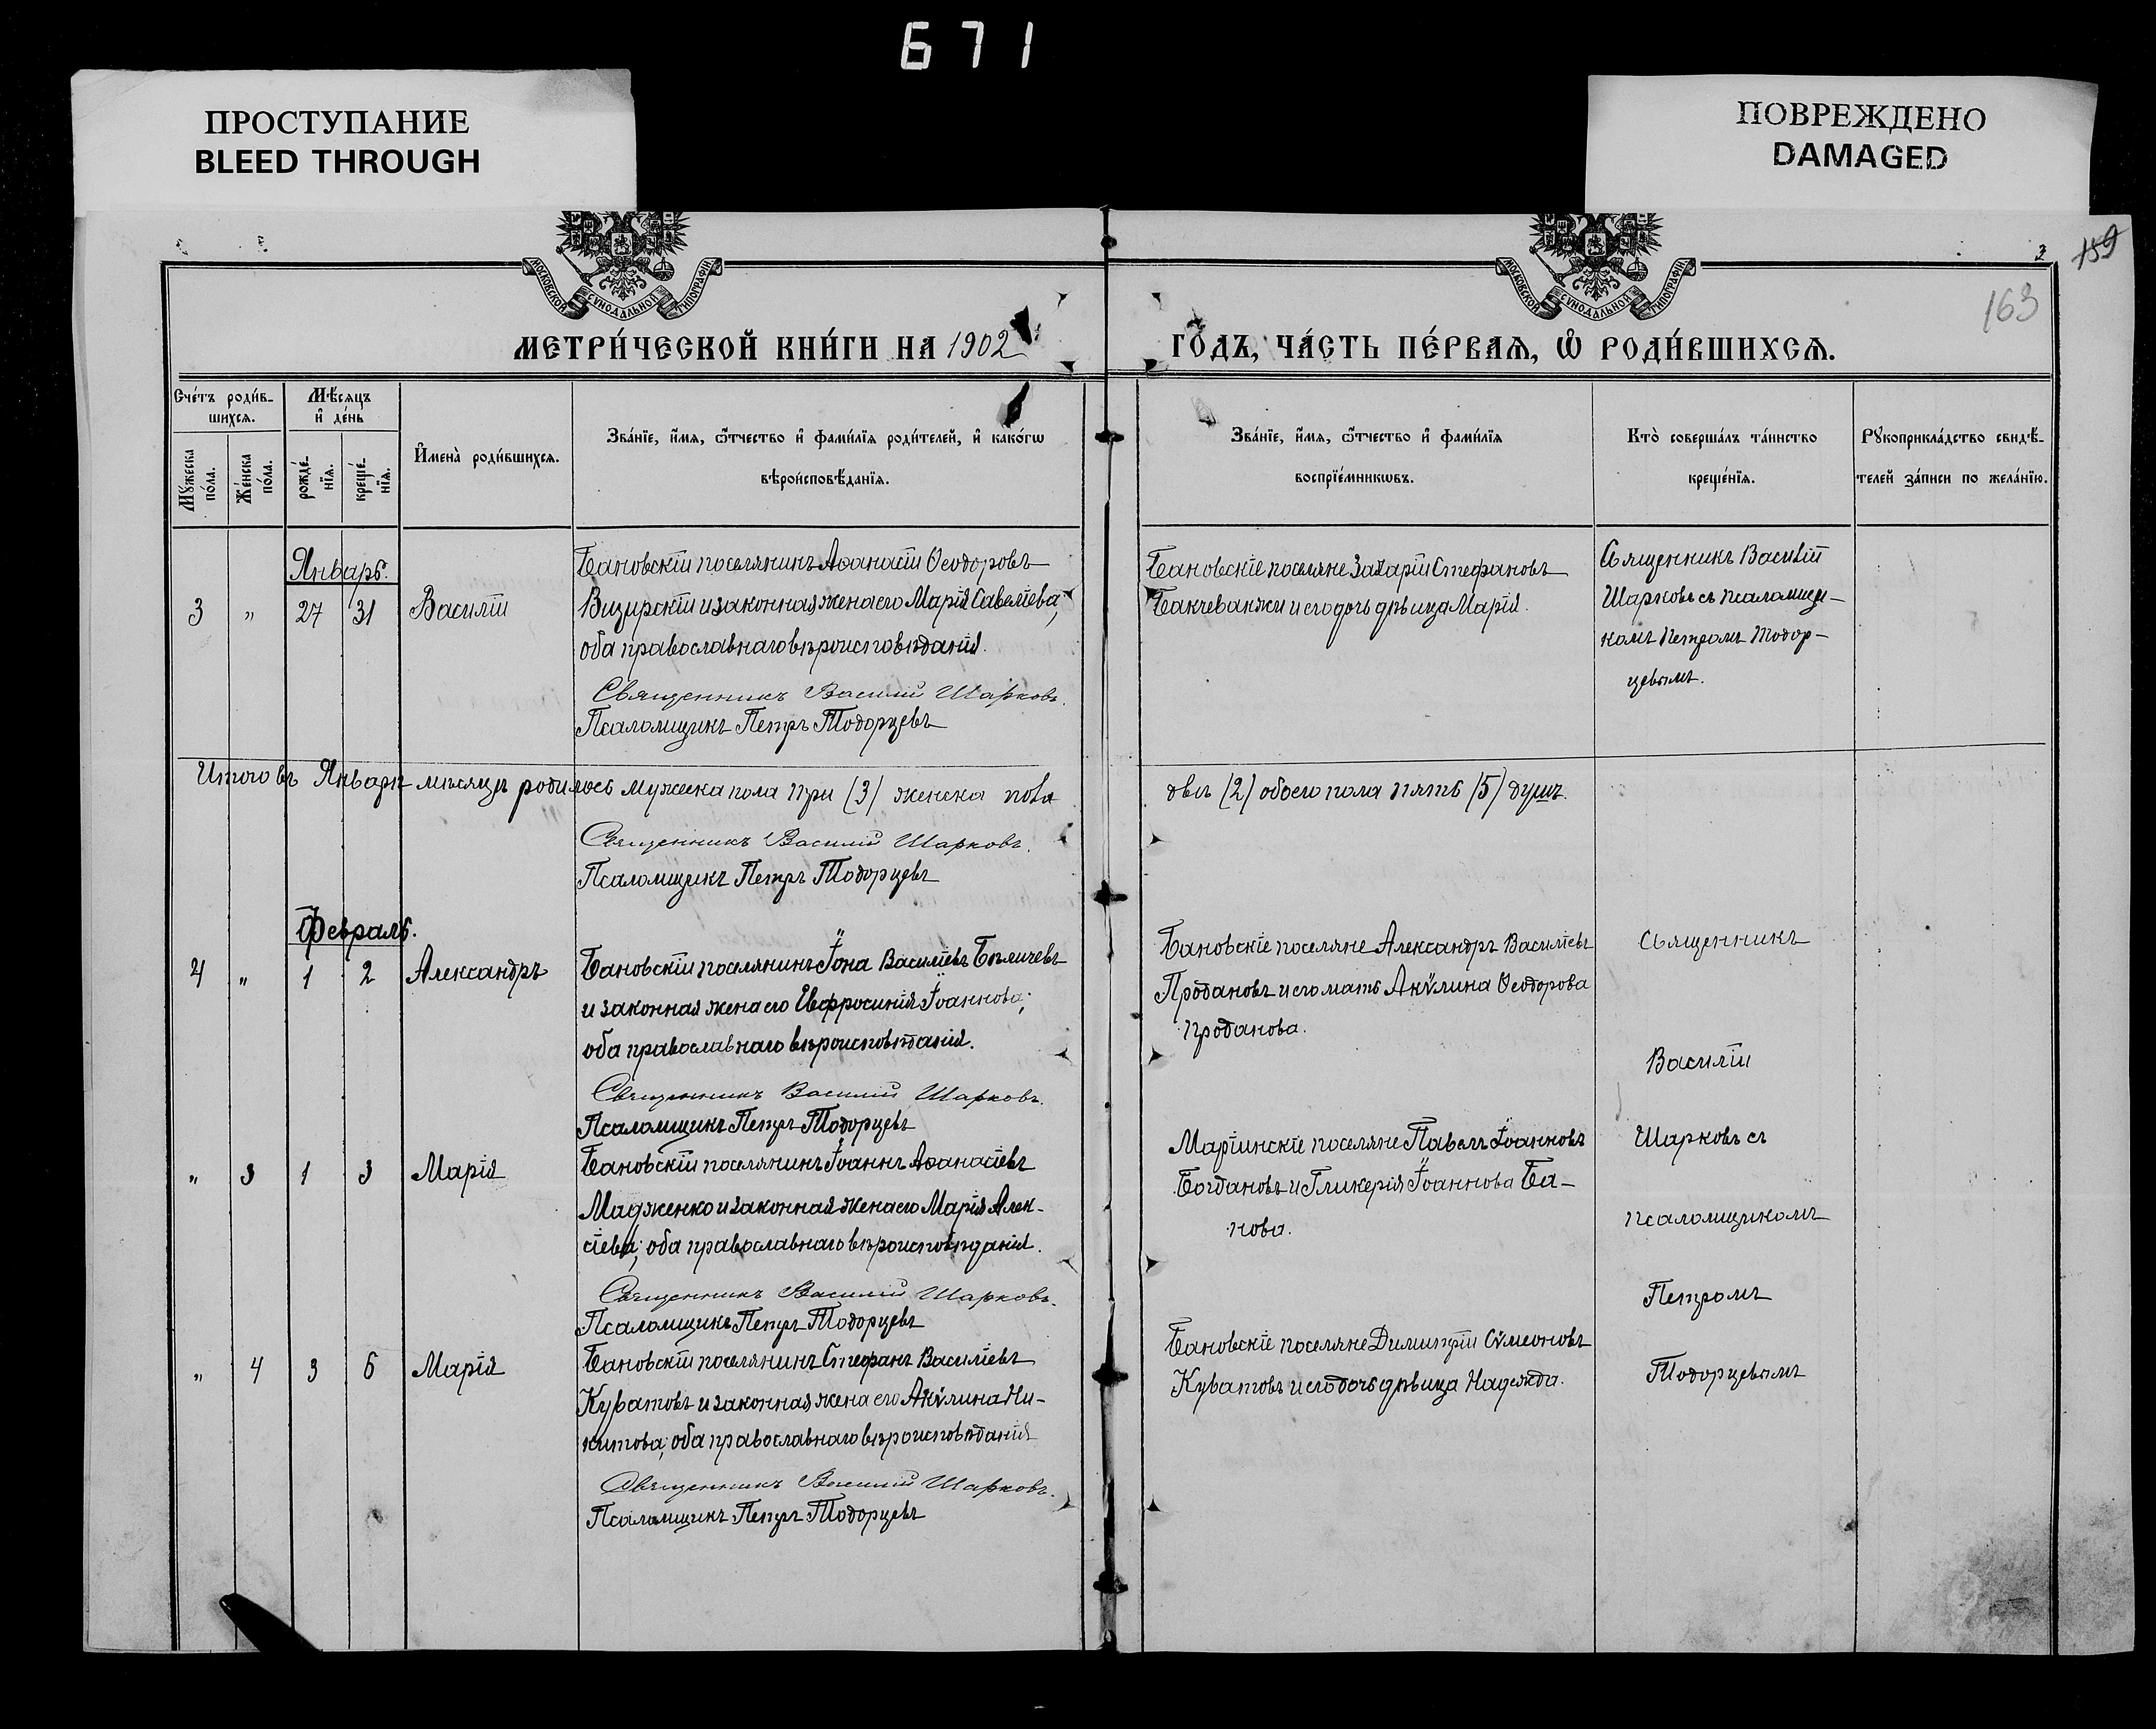 671
ПРОСТУПАНИЕ
BLEED THROUGH
ПОВРЕЖДЕНО
DAMAGED
МОСКОВСКОЙ СУНОДАЛЬНОЙ ТИПОГРАФІИ
МОСКОВСКОЙ СУНОДАЛЬНОЙ ТИПОГРАФІИ
3
159
163
МЕТРИ́ЧЕСКОЙ КНИ́ГИ НА 1902 ГО́ДЪ, ЧА́СТЬ ПЕ́РВАѦ, Ѡ҆ РОДИ́ВШИХСѦ.
Сче́тъ роди́в-
шихсѧ.
Мꙋ́жеска по́ла.
Же́нска по́ла.
Мѣ́сѧцъ
и҆ де́нь
рожде́-
нїѧ.
креще́-
нїѧ.
И҆мена̀ роди́вшихсѧ.
Зва́нїе, и҆́мѧ, ѻ҆́тчество и҆ фами́лїѧ роди́телей, и҆ како́гѡ
вѣроисповѣ́данїѧ.
Зва́нїе, и҆́мѧ, ѻ҆́тчество и҆ фами́лїѧ
воспрїе́мникѡвъ.
Кто̀ соверша́лъ та́инство
креще́нїѧ.
Рꙋкоприкла́дство свидѣ́-
телей за́писи по жела́нїю.
Январь.
3 " 27 31 Василій
Бановскій поселянинъ Аѳанасій Ѳеодоровъ
Визирскій и законная жена его Марія Савеліева,
оба православнаго вѣроисповѣданія.
Священникъ Василій Шарковъ.
Псаломщикъ Петръ Тодорцевъ
Бановскіе поселяне Захарій Стефановъ
Бакчеванжи и его дочь дѣвица Марія.
Священникъ Василій
Шарковъ съ псаломщи-
комъ Петромъ Тодор-
цевымъ.
Итого въ Январѣ мѣсяцѣ родилось мужеска пола три (3) женска пола двѣ (2) обоего пола пять (5) душъ.
Священникъ Василій Шарковъ.
Псаломщикъ Петръ Тодорцевъ
Февраль.
4 " 1 2 Александръ
Бановскій поселянинъ Іона Василіевъ Бѣличевъ
и законная жена его Евфросинія Іоаннова;
оба православнаго вѣроисповѣданія.
Священникъ Василій Шарковъ.
Псаломщикъ Петръ Тодорцевъ
Бановскіе поселяне Александръ Василіевъ
Продановъ и его мать Акѵлина Ѳеодорова
Проданова.
" 3 1 3 Марія
Бановскій поселянинъ Іоаннъ Аѳанасіевъ
Мадженко и законная жена его Марія Алек-
сіева; оба православнаго вѣроисповѣданія.
Священникъ Василій Шарковъ.
Псаломщикъ Петръ Тодорцевъ
Маріинскіе поселяне Павелъ Іоанновъ
Богдановъ и Гликерія Іоаннова Ба-
нова.
" 4 3 6 Марія
Бановскій поселянинъ Стефанъ Василіевъ
Куватовъ и законная жена его Акѵлина Ни-
китова; оба православнаго вѣроисповѣданія
Священникъ Василій Шарковъ.
Псаломщикъ Петръ Тодорцевъ
Бановскіе поселяне Димитрій Сѵмеоновъ
Куватовъ и его дочь дѣвица Надежда.
Священникъ
Василій
Шарковъ съ
псаломщикомъ
Петромъ
Тодорцевымъ